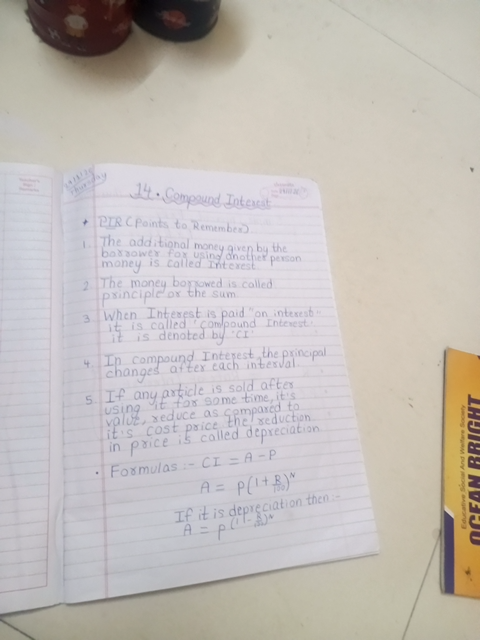 Thursday
14. Compound Interest
* PTR (Points to Remember)
1. The additional money given by the
borrower for using another person
money is called Interest
2. The money borrowed is called
principle or the sum
3. When Interest is paid "on interest"
it is called 'compound Interest'
it is denoted by 'CI'
4. In compound Interest, the principal
changes after each interval
5. If any article is sold after
using it for some time, it's
value, reduce as compared to
it's cost price the reduction
in price is called depreciation
• Formulas :- CI = A - P
A = P(1 + R/100)^N
If it is depreciation then :-
A = P(1 - R/100)^N
Educational Social And Welfare Society
OCEAN BRIGHT